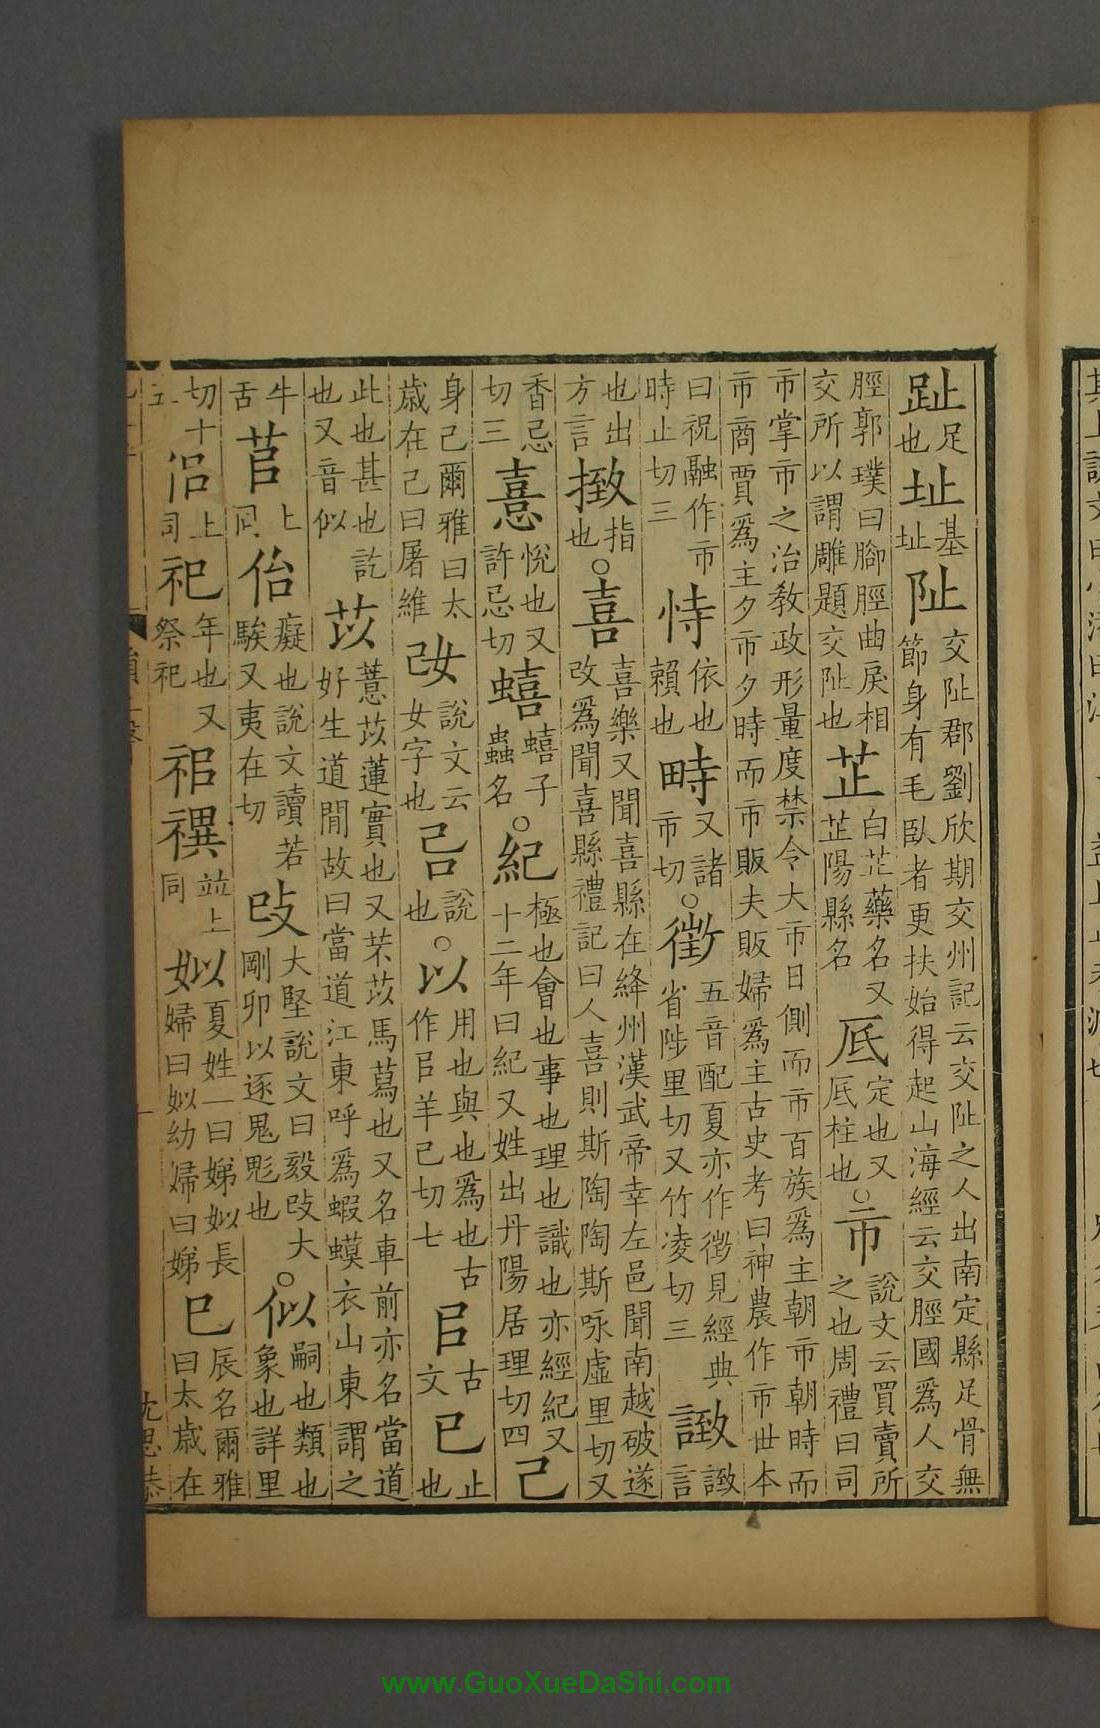 趾足也址基址阯交阯郡劉欣期交州記云交阯之人出南定縣足骨無節身有毛臥者更扶始得起山海經云交脛國爲人交
脛郭璞曰腳脛曲戾相交所以謂雕題交阯也芷白芷藥名又芷陽縣名厎定也又厎柱也○市說文云買賣所之也周禮曰司
市掌市之治敎政形量度禁令大市日側而市百族爲主朝市朝時而市商賈爲主夕市夕時而市販夫販婦爲主古史考曰神農作市世本
曰祝融作市時止切三恃依也賴也畤又諸市切○徵五音配夏亦作徵見經典省陟里切又竹淩切三誺誺言
也出方言㨖指也○喜喜樂又聞喜縣在絳州漢武帝幸左邑聞南越破遂改爲聞喜縣禮記曰人喜則斯陶陶斯咏虛里切又
香忌切三憙悅也又許忌切蟢蟢子蟲名○紀極也會也事也理也識也亦經紀又十二年曰紀又姓出丹陽居理切四己
身己爾雅曰太歲在己曰屠維改說文云女字也㠱說也○以用也與也爲也古作㠯羊己切七㠯古文已止也
此也甚也訖也又音似苡薏苡蓮實也又芣苡馬蕮也又名車前亦名當道好生道閒故曰當道江東呼爲蝦蟆衣山東謂之
牛舌苢上同佁癡也說文讀若騃又夷在切㱼大堅說文曰毅㱼大剛卯以逐鬼鬽也○似嗣也類也象也詳里
切十一侣上同祀年也又祭祀䄫禩並上同姒夏姓一曰娣姒長婦曰姒幼婦曰娣巳辰名爾雅曰太歲在
沈思恭
www.GuoXueDaShi.com